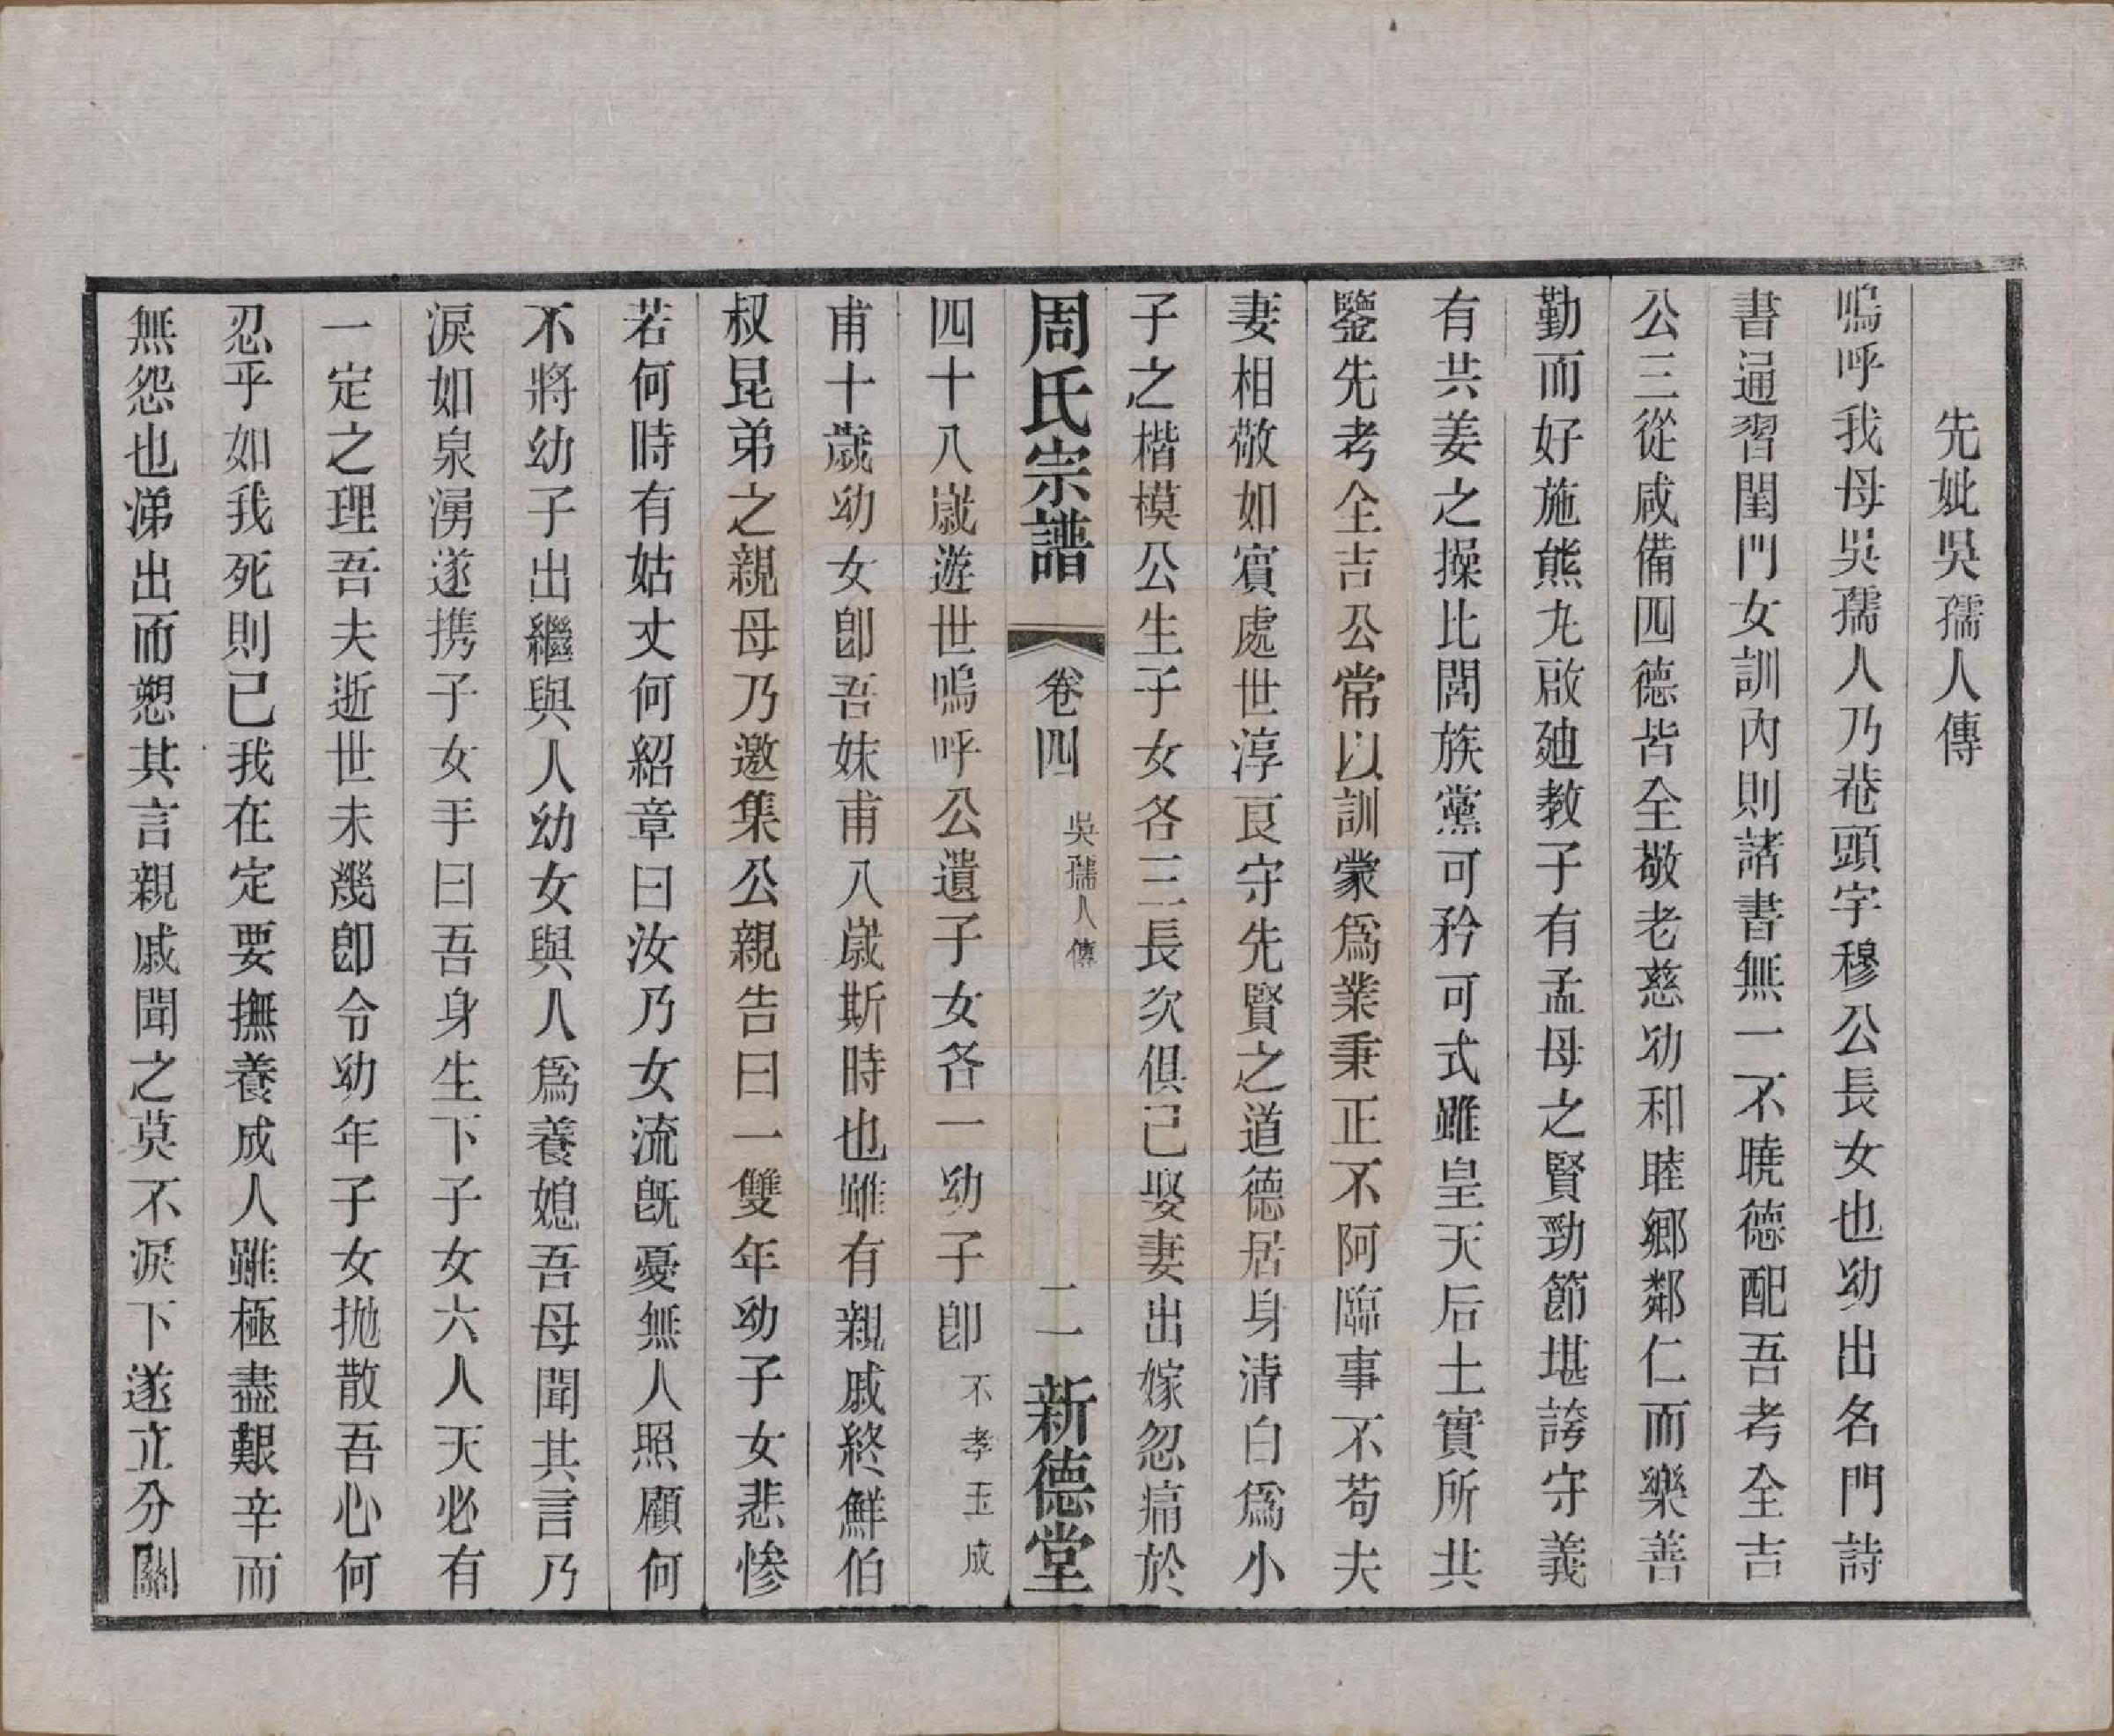 先妣吳孺人傳
嗚呼我母吳孺人乃菴頭宇穆公長女也幼出名門詩
書通習閨門女訓內則諸書無一不曉德配吾考全吉
公三從咸備四德皆全敬老慈幼和睦鄉鄰仁而樂善
勤而好施熊九啟廸教子有孟母之賢勁節堪誇守義
有共姜之操比閭族黨可矜可式雖皇天后土實所共
鑒先考全吉公常以訓蒙爲業秉正不阿臨事不苟夫
妻相敬如賓處世淳良守先賢之道德居身清白爲小
子之楷模公生子女各三長次俱已娶妻出嫁忽痛於
周氏宗譜 卷四 吳孺人傳 二 新德堂
四十八歲遊世嗚呼公遺子女各一幼子卽不孝玉成
甫十歲幼女卽吾妹甫八歲斯時也雖有親戚終鮮伯
叔昆弟之親母乃邀集公親告曰一雙年幼子女悲慘
若何時有姑丈何紹章曰汝乃女流旣憂無人照顧何
不將幼子出繼與人幼女與人爲養媳吾母聞其言乃
淚如泉湧遂携子女手曰吾身生下子女六人天必有
一定之理吾夫逝世未幾卽令幼年子女拋散吾心何
忍乎如我死則已我在定要撫養成人雖極盡艱辛而
無怨也涕出而愬其言親戚聞之莫不淚下遂立分關